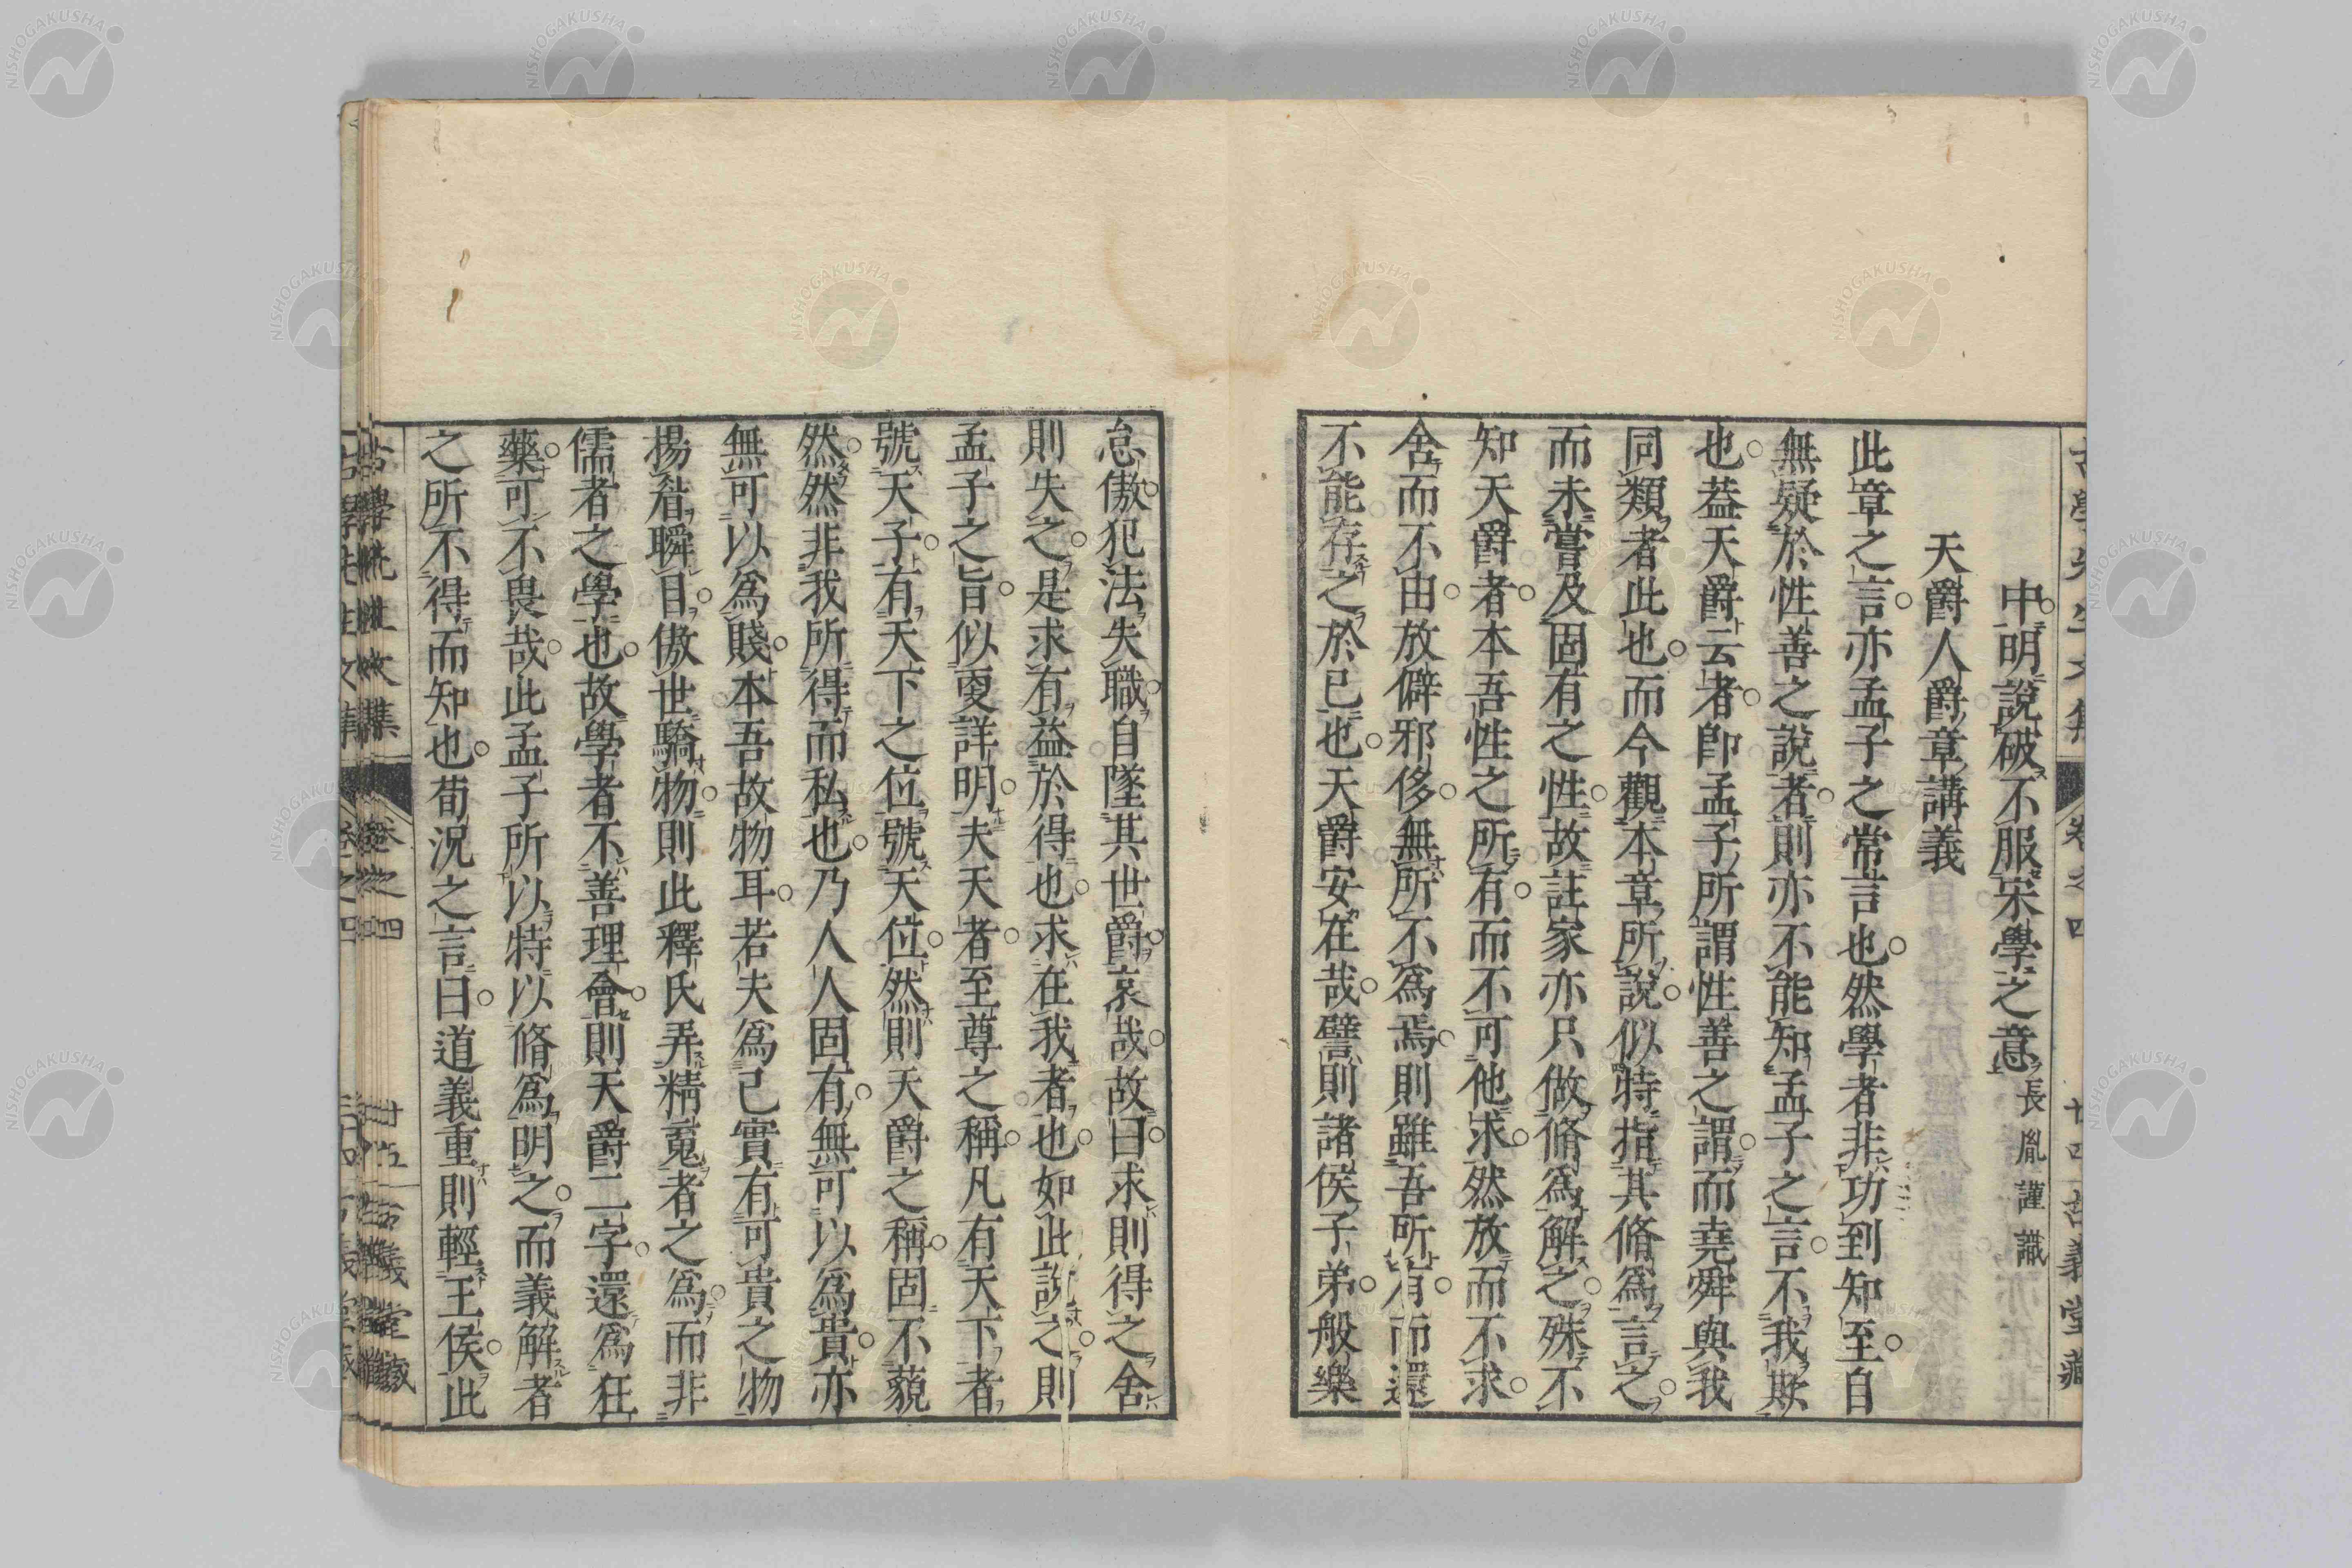 古學先生文集 卷之四 廿四 古義堂藏
中明說破不服宋學之意長胤謹識
天爵人爵章講義
此章之言亦孟子之常言也然學者非功到知至自
無疑於性善之說者則亦不能知孟子之言不我欺
也蓋天爵云者卽孟子所謂性善之謂而堯舜與我
同類者此也而今觀本章所說似特指其脩爲言之
而未嘗及固有之性故註家亦只做脩爲解之殊不
知天爵者本吾性之所有而不可他求然放而不求
舍而不由放僻邪侈無所不爲焉則雖吾所有而還
不能存之於己也天爵安在哉譬則諸侯子弟般樂
怠傲犯法失職自墜其世爵哀哉故曰求則得之舍
則失之是求有益於得也求在我者也如此說之則
孟子之旨似更詳明夫天者至尊之稱凡有天下者
號天子有天下之位號天位然則天爵之稱固不藐
然然非我所得而私也乃人人固有無可以爲貴亦
無可以爲賤本吾故物耳若夫爲己實有可貴之物
揚眉瞬目傲世驕物則此釋氏弄精䰟者之爲而非
儒者之學也故學者不善理會則天爵二字還爲狂
藥可不畏哉此孟子所以特以脩爲明之而義解者
之所不得而知也荀況之言曰道義重則輕王侯此
古學先生文集 卷之四 廿五 古義堂藏